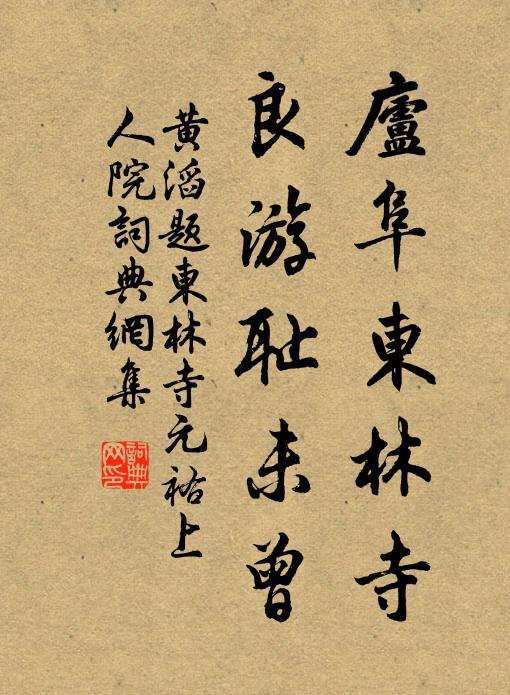 廬阜東林寺
良游耻未曾
黄滔题東林寺元祐上
人院詞典網集
詞典網印